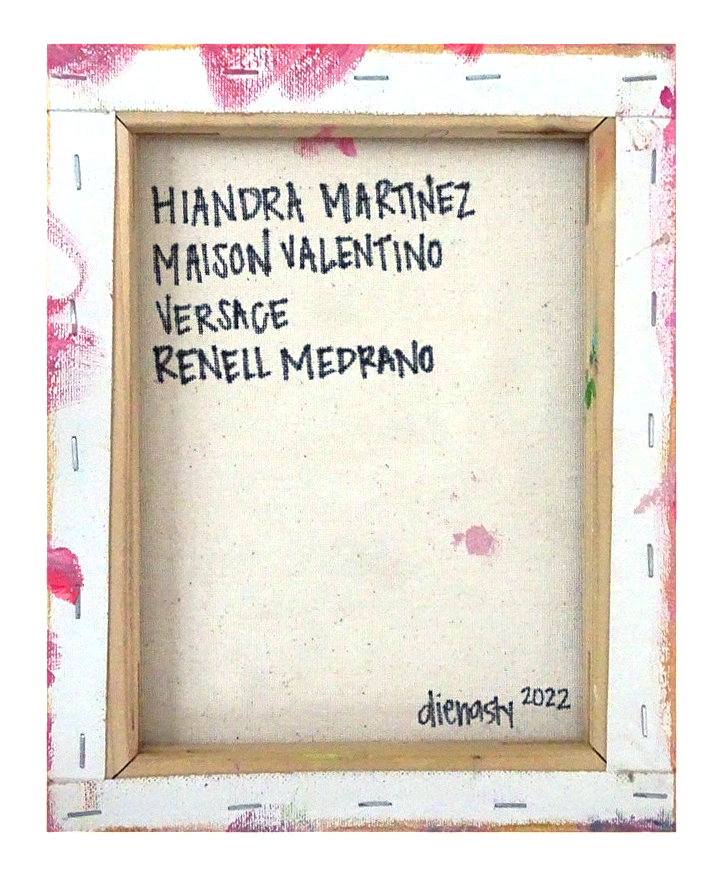 HIANDRA MARTINEZ
MAISON VALENTINO
VERSACE
RENELL MEDRANO
dienasty 2022